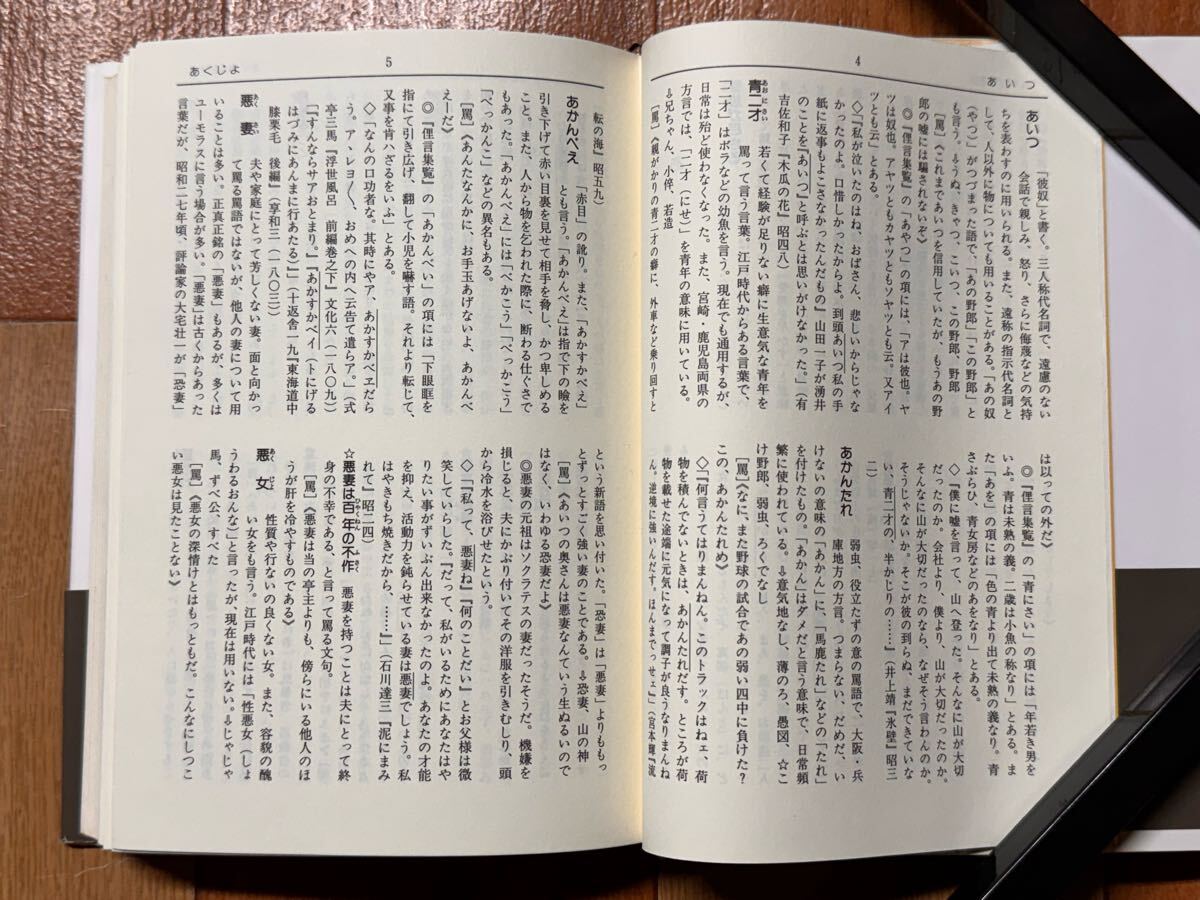 4
あいつ
あいつ
「彼奴」と書く。三人称代名詞で、遠慮のない
会話で親しみ、怒り、さらに侮蔑などの気持
ちを表わすのに用いられる。また、遠称の指示代名詞と
して、人以外に物についても用いることがある。「あの奴
(やつ)」がつづまった語で、「あの野郎」「この野郎」と
も言う。⇩うぬ、きゃつ、こいつ、この野郎、野郎
［罵］《これまであいつを信用していたが、もうあの野
郎の嘘には騙されないぞ》
◎『俚言集覧』の「あやつ」の項には、「アは彼也。ヤ
ツは奴也。アヤツともカヤツともソヤツとも云。又アイ
ツとも云」とある。
◇「『私が泣いたのはね、おばさん、悲しいからじゃな
かったのよ。口惜しかったからよ。到頭あいつ私の手
紙に返事もよこさなかったんだもの』山田一子が湧井
のことを『あいつ』と呼ぶとは思いがけなかった。」(有
吉佐和子『木瓜の花』昭四八)
青二才
あおにさい
若くて経験が足りない癖に生意気な青年を
罵って言う言葉。江戸時代からある言葉で、
「二才」はボラなどの幼魚を言う。現在でも通用するが、
日常は殆ど使わなくなった。また、宮崎・鹿児島両県の
方言では、「二才(にせ)」を青年の意味に用いている。
⇩兄ちゃん、小倅、若造
［罵］《親がかりの青二才の癖に、外車など乗り回すと
は以っての外だ》
◎『俚言集覧』の「青にさい」の項には「年若き男を
いふ。青は未熟の義。二歳は小魚の称なり」とある。ま
た「あを」の項には「色の青より出て未熟の義なり。青
さぶらひ、青女房などのあをなり」とある。
◇「僕に嘘を言って、山へ登った。そんなに山が大切
だったのか。会社より、僕より、山が大切だったのか。
そんなに山が大切だったのなら、なぜそう言わんのか。
そうじゃないか。そこが彼の到らぬ、まだできていな
い、青二才の、半かじりの……」(井上靖『氷壁』昭三
二)
あかんたれ
弱虫、役立たずの意の罵語で、大阪・兵
庫地方の方言。つまらない、だめだ、い
けないの意味の「あかん」に、「馬鹿たれ」などの「たれ」
を付けたもの。「あかん」はダメだと言う意味で、日常頻
繁に使われている。⇩意気地なし、薄のろ、愚図、☆こ
け野郎、弱虫、ろくでなし
［罵］《なに、また野球の試合であの弱い四中に負けた?
この、あかんたれめ》
◇「『何言うてはりまんねん。このトラックはねェ、荷
物を積んでないときは、あかんたれだす。ところが荷
物を載せた途端に元気になって調子が良うなりまんね
ん。逆境に強いんだす。ほんまでっせェ』」(宮本輝『流
5
あくじょ
転の海』昭五九)
あかんべえ
「赤目」の訛り。また、「あかすかべえ」
とも言う。「あかんべえ」は指で下の瞼を
引き下げて赤い目裏を見せて相手を脅し、かつ卑しめる
こと。また、人から物を乞われた際に、断わる仕ぐさで
もあった。「あかんべえ」には「べかこう」「べっかこう」
「べっかんこ」などの異名もある。
［罵］《あんたなんかに、お手玉あげないよ、あかんべ
えーだ》
◎『俚言集覧』の「あかんべい」の項には「下眼眶を
指にて引き広げ、翻して小児を嚇す語。それより転じて、
又事を肯ハざるをいふ」とある。
◇「なんの口功者な。其時にやア、あかすかべヱだら
う。ア、レヨ〱、おめへの内へ云告て遣らア。」(式
亭三馬『浮世風呂 前編巻之下』文化六(一八〇九)
「『すんならサアおとまり。』『あかすかべイ(トにげる
はづみにあんまに行あたる)』」(十返舎一九『東海道中
膝栗毛 後編』(享和三(一八〇三))
悪妻
あくさい
夫や家庭にとって芳しくない妻。面と向かっ
て罵る罵語ではないが、他人の妻について用
いることは多い。正真正銘の「悪妻」もあるが、多くは
ユーモラスに言う場合が多い。「悪妻」は古くからあった
言葉だが、昭和二七年頃、評論家の大宅壮一が「恐妻」
という新語を思い付いた。「恐妻」は「悪妻」よりももっ
とずっとすごく強い妻のことである。⇩恐妻、山の神
［罵］《あいつの奥さんは悪妻なんていう生ぬるいので
はなく、いわゆる恐妻だよ》
◎悪妻の元祖はソクラテスの妻だったそうだ。機嫌を
損じると、夫にかぶり付いてその洋服を引きむしり、頭
から冷水を浴びせたという。
◇「『私って、悪妻ね』『何のことだい』とお父様は微
笑していらした。『だって、私がいるためにあなたはや
りたい事がずいぶん出来なかったのよ。あなたの才能
を抑え、活動力を鈍らせている妻は悪妻でしょう。私
はやきもち焼きだから、……』」(石川達三『泥にまみ
れて』昭二四)
☆悪妻は百年の不作
ひゃくねん
ふさく
悪妻を持つことは夫にとって終
身の不幸である、と言って罵る文句。
［罵］《悪妻は当の亭主よりも、傍らにいる他人のほ
うが肝を冷やすものである》
悪女
あくじょ
性質や行ないの良くない女。また、容貌の醜
い女をも言う。江戸時代には「性悪女(しょ
うわるおんな)」と言ったが、現在は用いない。⇩じゃじゃ
馬、ずべ公、すべた
［罵］《悪女の深情けとはもっともだ。こんなにしつこ
い悪女は見たことない》